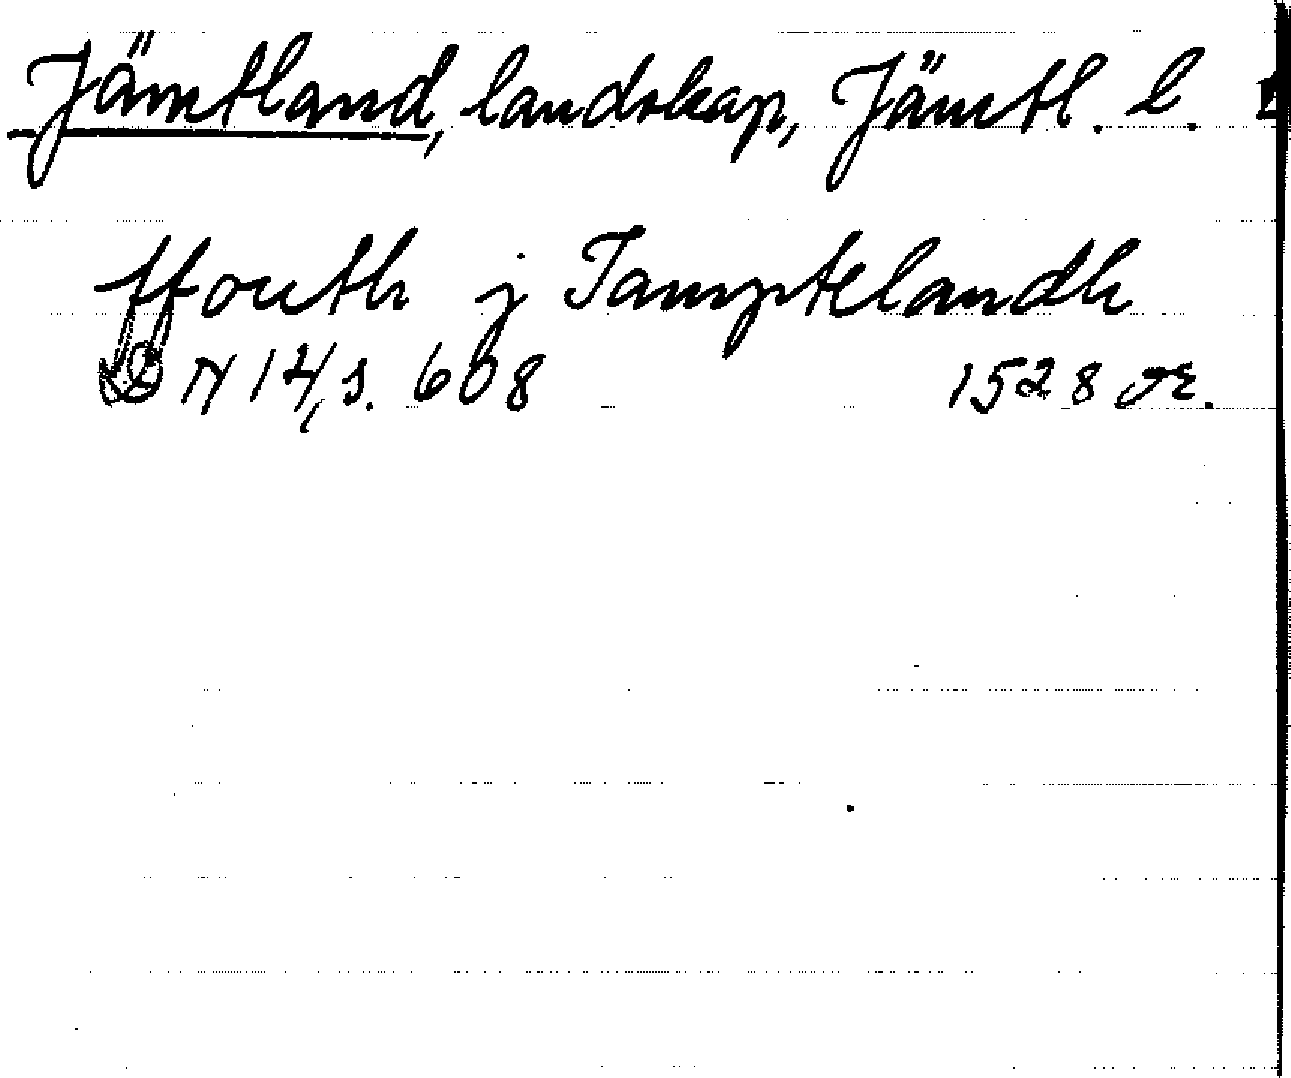 Jämtland, landskap, Jämtl. l.
ffouth j Jamptelandh
DN 14, s. 608 1528 or.